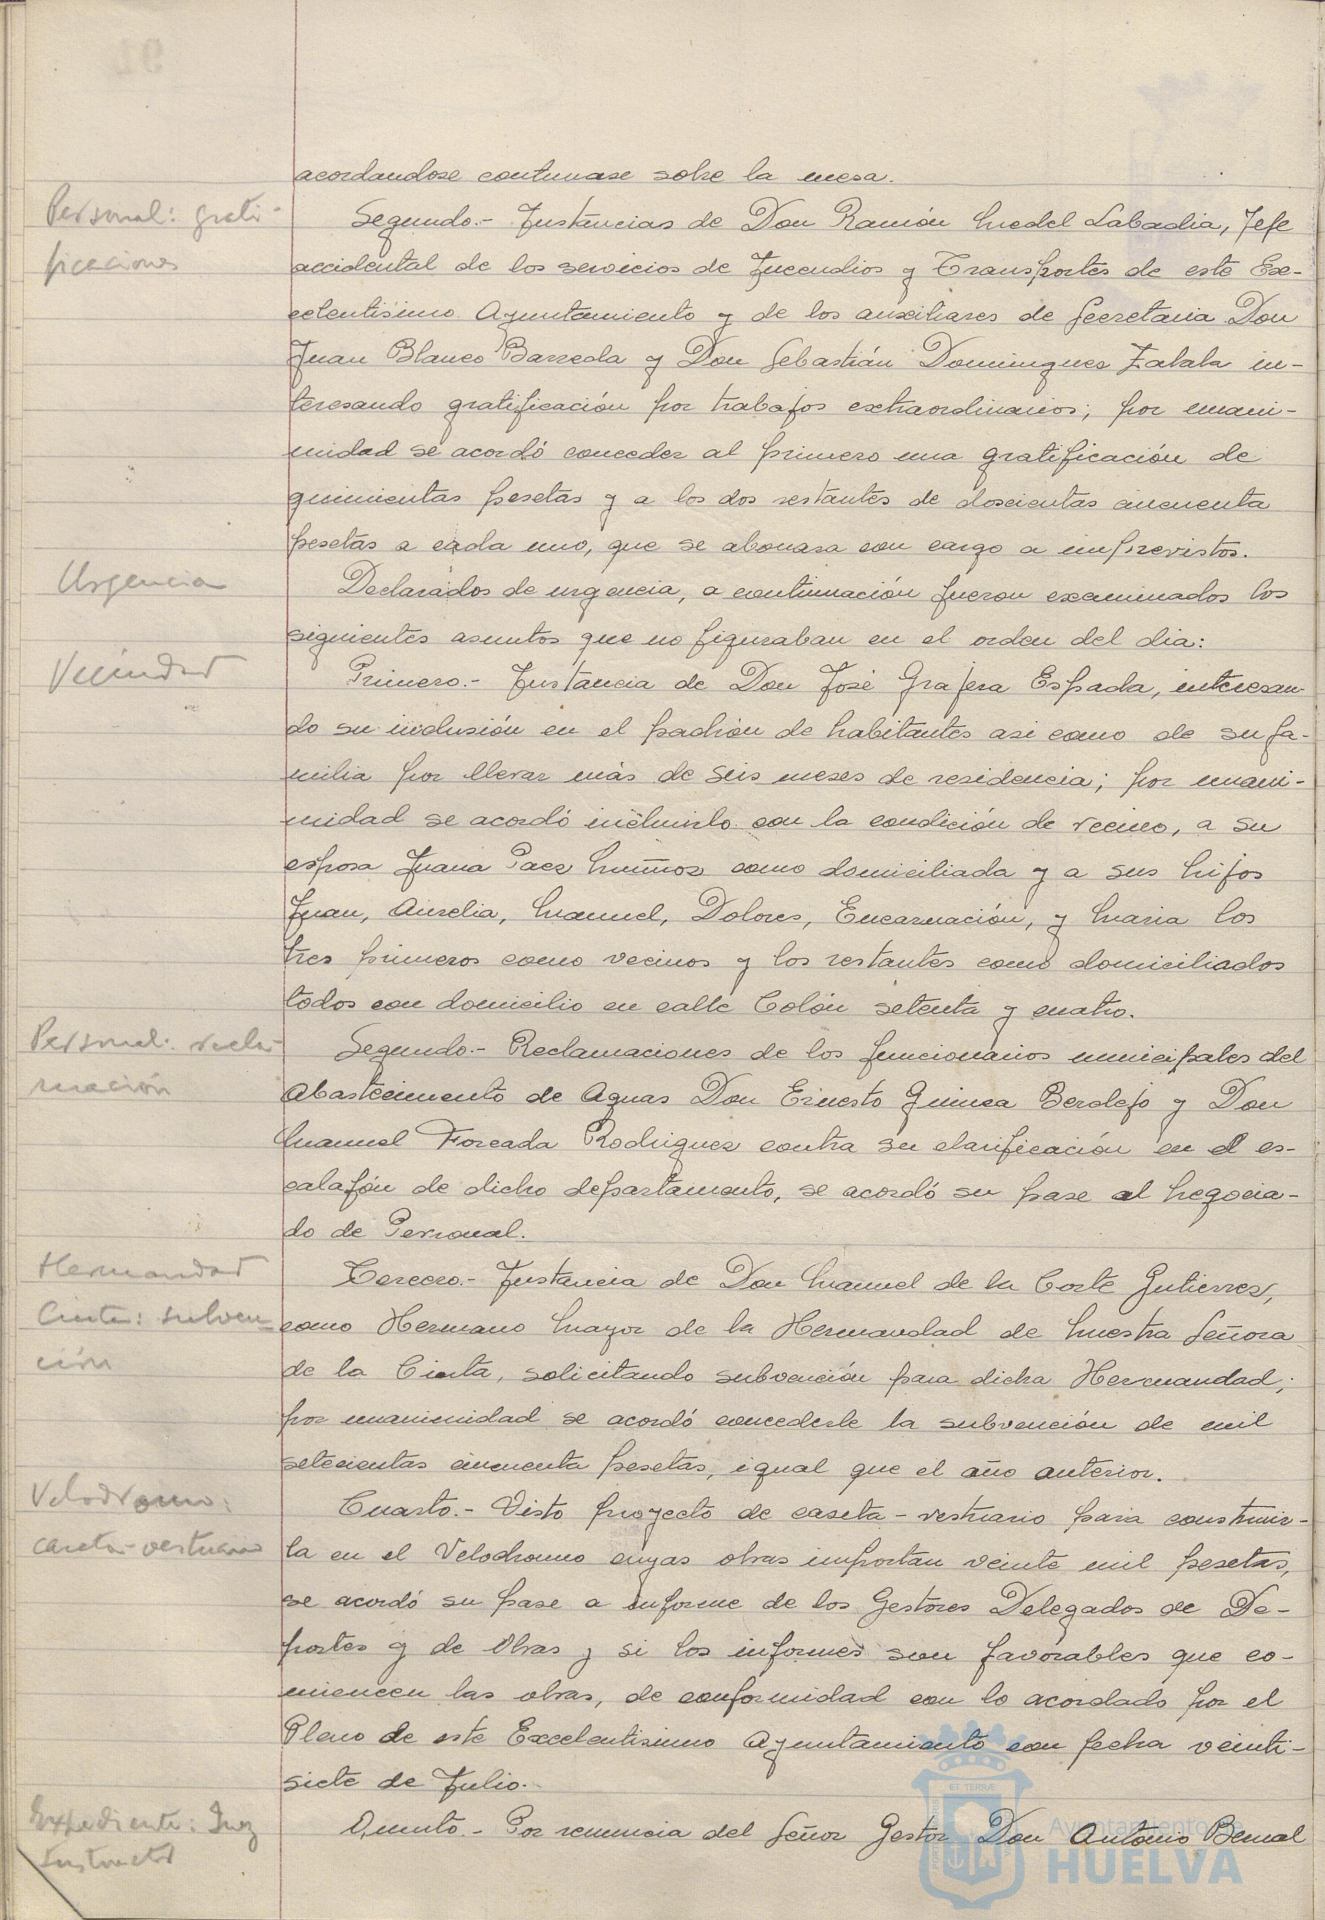 acordandose continuase sobre la mesa.
Personal: grati-
ficaciones
Segundo.- Instancias de Don Ramón Medel Labadia, Jefe
accidental de los servicios de Incendios y Transportes de este Ex-
celentisimo Ayuntamiento y de los auxiliares de Secretaria Don
Juan Blanco Barreda y Don Sebastián Dominguez Zalala in-
teresando gratificación por trabajos extraordinarios; por unani-
midad se acordó conceder al primero una gratificación de
quinientas pesetas y a los dos restantes de doscientas cincuenta
pesetas a cada uno, que se abonara con cargo a imprevistos.
Urgencia
Declarados de urgencia, a continuación fueron examinados los
siguientes asuntos que no figuraban en el orden del dia:
Vecindad
Primero.- Instancia de Don José Grajera Espada, interesan-
do su inclusión en el padrón de habitantes asi como de su fa-
milia por llevar más de seis meses de residencia; por unani-
midad se acordó incluirlo con la condición de vecino, a su
esposa Juana Paez Muñoz como domiciliada y a sus hijos
Juan, Aurelia, Manuel, Dolores, Encarnación, y Maria los
tres primeros como vecinos y los restantes como domiciliados
todos con domicilio en calle Colón setenta y cuatro.
Personal: recla-
mación
Segundo.- Reclamaciones de los funcionarios municipales del
Abastecimento de Aguas Don Ernesto Guinea Berdejo y Don
Manuel Forcada Rodriguez contra su clasificación en el es-
calafón de dicho departamento, se acordó su pase al Negocia-
do de Personal.
Hermandad
Cinta: subven-
ción
Tercero.- Instancia de Don Manuel de la Corte Gutierrez,
como Hermano Mayor de la Hermandad de Nuestra Señora
de la Cinta, solicitando subvención para dicha Hermandad;
por unanimidad se acordó concederle la subvención de mil
setecientas cincuenta pesetas, igual que el año anterior.
Velodromo:
caseta-vestuario
Cuarto.- Visto proyecto de caseta-vestuario para construir-
la en el Velodromo cuyas obras importan veinte mil pesetas,
se acordó su pase a informe de los Gestores Delegados de De-
portes y de Obras y si los informes son favorables que co-
miencen las obras, de conformidad con lo acordado por el
Pleno de este Excelentisimo Ayuntamiento con fecha veinti-
siete de Julio.
Expediente: Juez
Instructor
Quinto.- Por renuncia del Señor Gestor Don Antonio Bernal
Ayuntamiento de
HUELVA